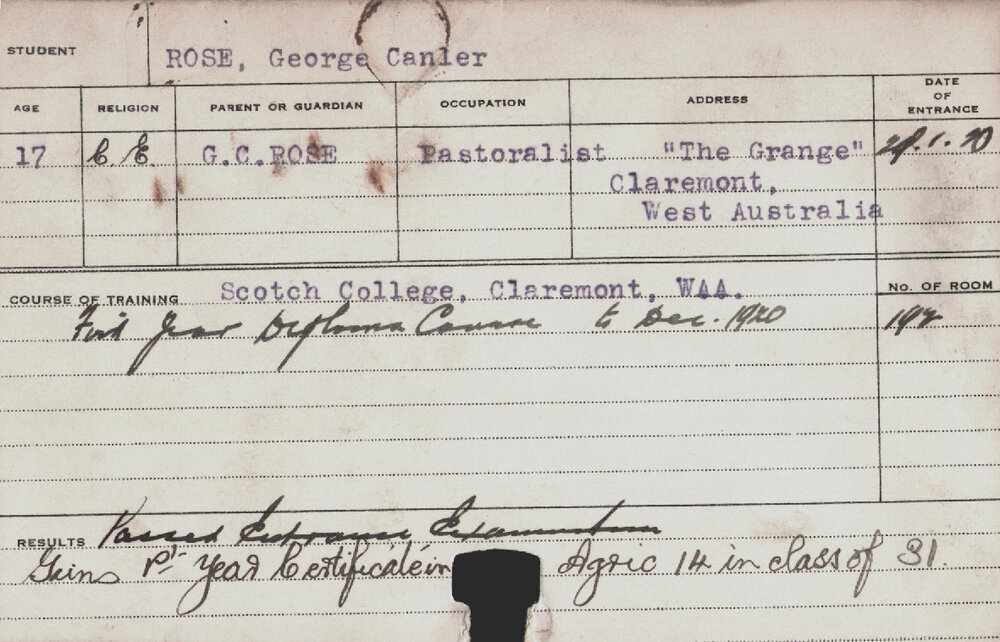 STUDENT ROSE, George Canler
AGE RELIGION PARENT OR GUARDIAN OCCUPATION ADDRESS DATE OF ENTRANCE
17 C. E. G.C.ROSE Pastoralist "The Grange" .1.20
Claremont,
West Australia
COURSE OF TRAINING Scotch College, Claremont, WAA. No. OF ROOM
First Year Diploma Course to Dec. 1920
RESULTS Passed Entrance Examination
Gains 1st Year Certificate in Agric 14 in class of 31.